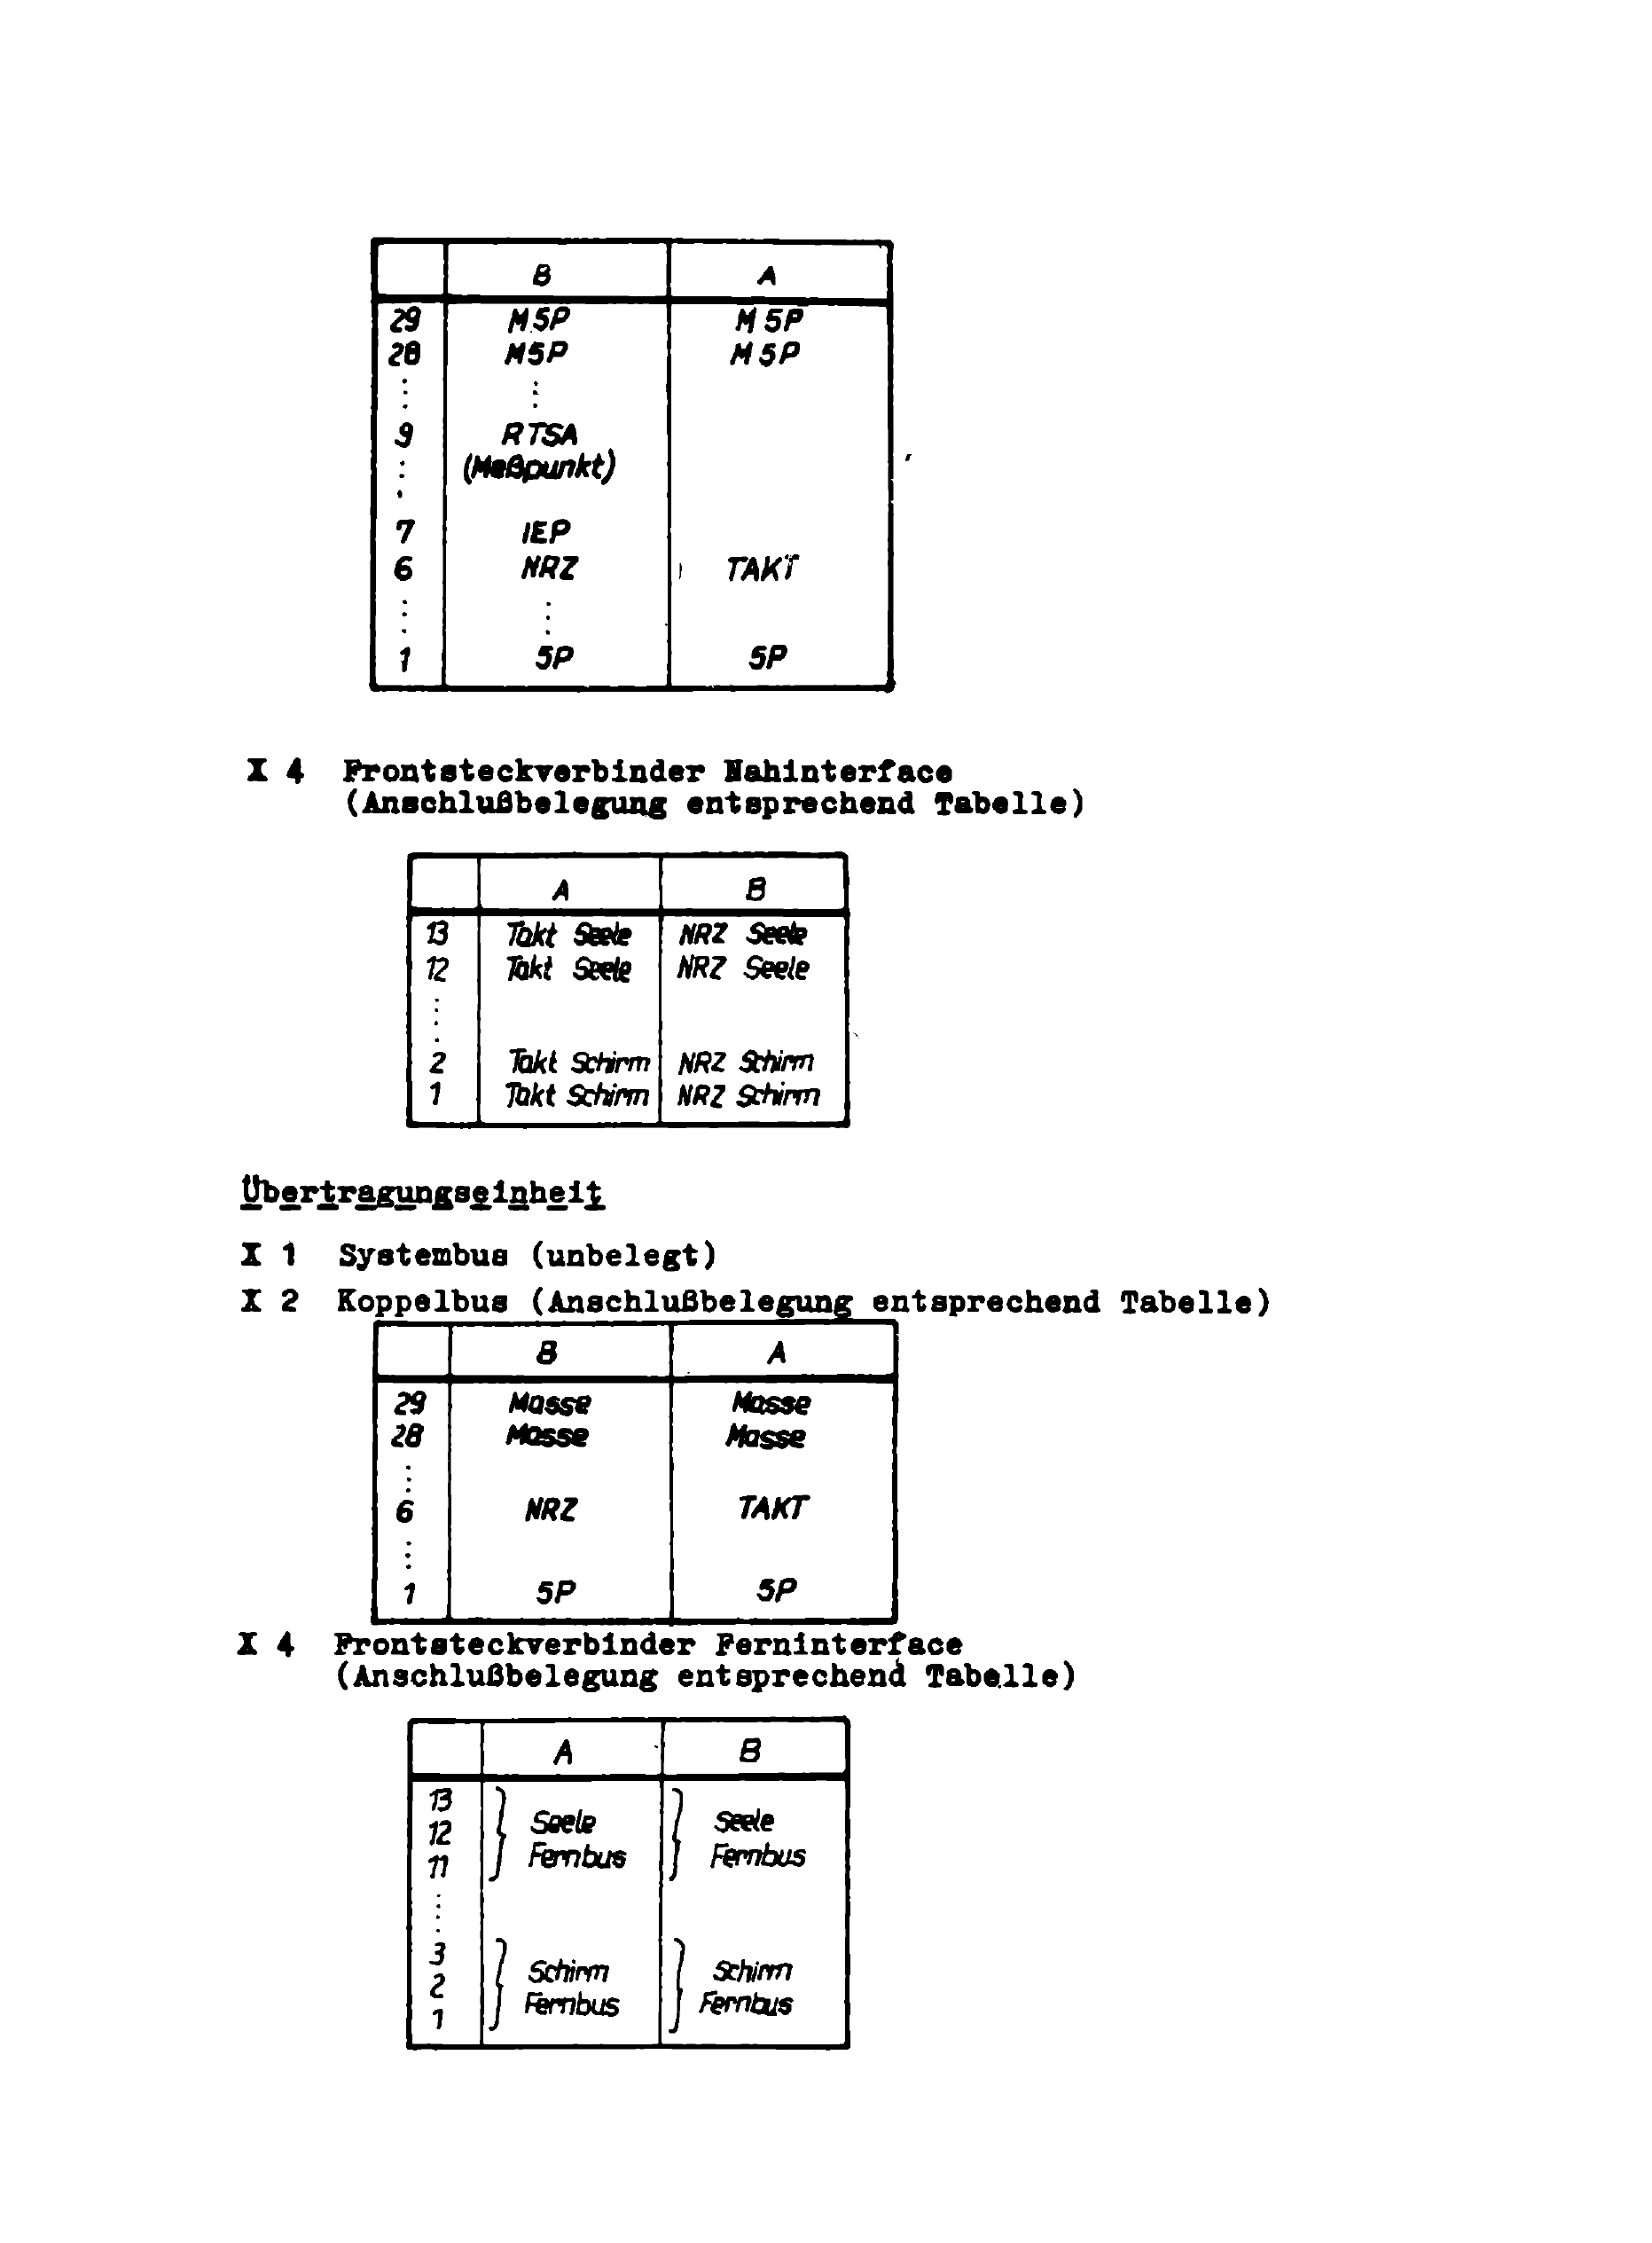 B A
29 M5P M5P
28 M5P M5P
⋮ ⋮
9 RTSA
(Meßpunkt)
⋮
7 IEP
6 NRZ TAKT
⋮ ⋮
1 5P 5P
X 4 Frontsteckverbinder Nahinterface
(Anschlußbelegung entsprechend Tabelle)
A B
13 Takt Seele NRZ Seele
12 Takt Seele NRZ Seele
⋮
2 Takt Schirm NRZ Schirm
1 Takt Schirm NRZ Schirm
Übertragungseinheit
X 1 Systembus (unbelegt)
X 2 Koppelbus (Anschlußbelegung entsprechend Tabelle)
B A
29 Masse Masse
28 Masse Masse
⋮
6 NRZ TAKT
⋮
1 5P 5P
X 4 Frontsteckverbinder Ferninterface
(Anschlußbelegung entsprechend Tabelle)
A B
13
12 Seele Seele
11 Fernbus Fernbus
⋮
3
2 Schirm Schirm
1 Fernbus Fernbus